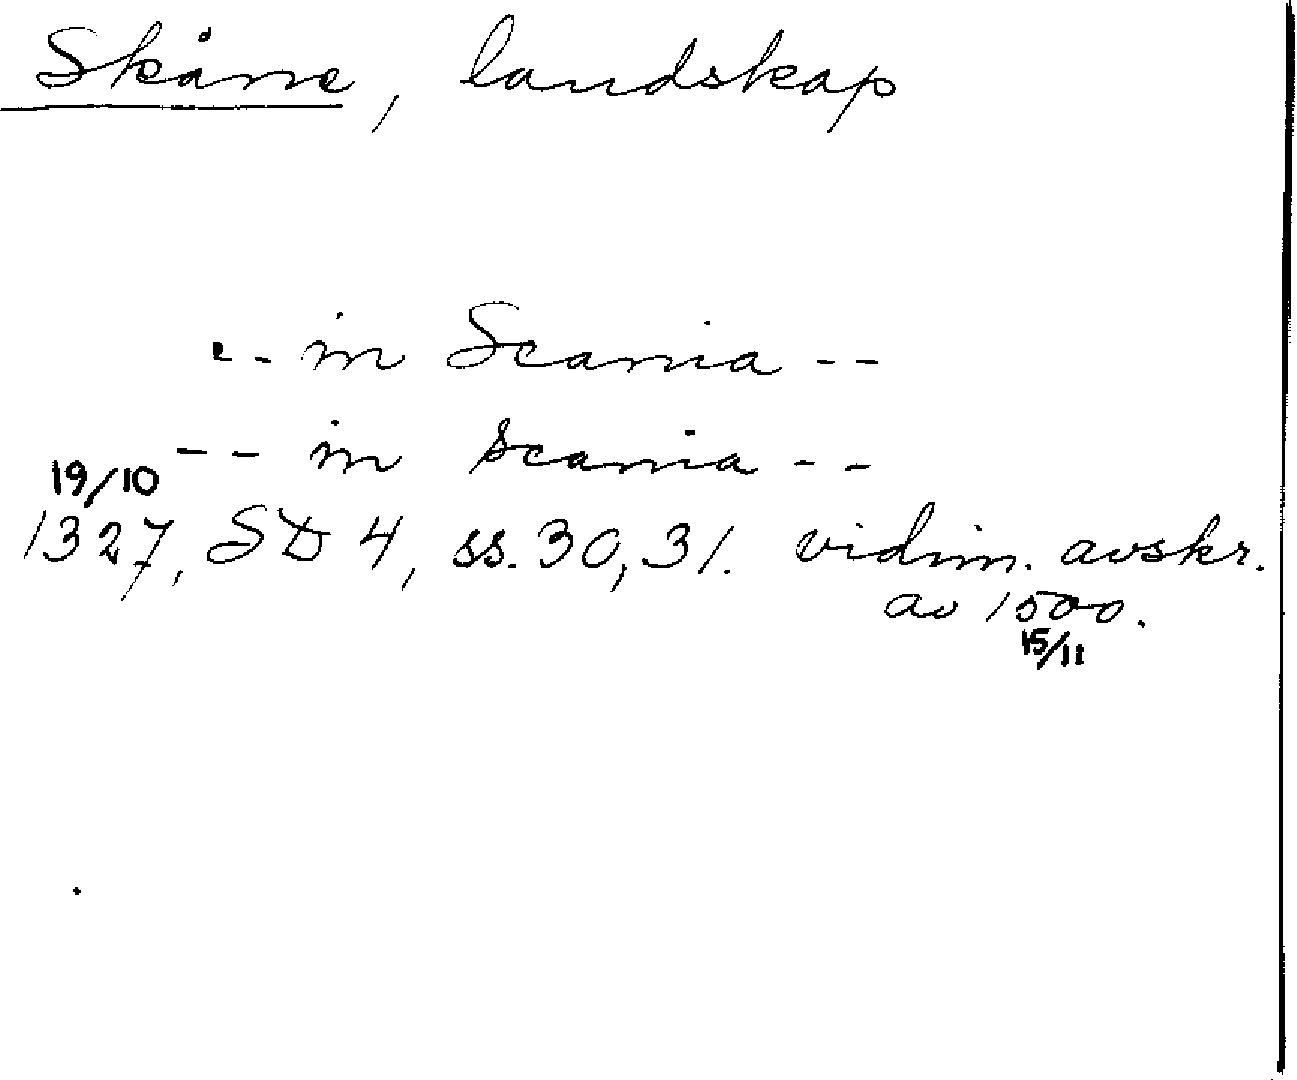 Skåne, landskap
-- in Scania --
-- in scania --
19/10
1327, SD 4, ss. 30, 31. vidim. avskr.
av 1500.
15/11